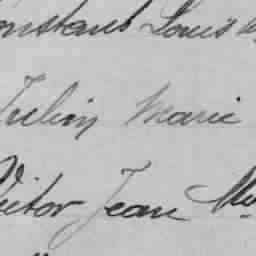 Constant Louis
Julien Marie
Victor Jean